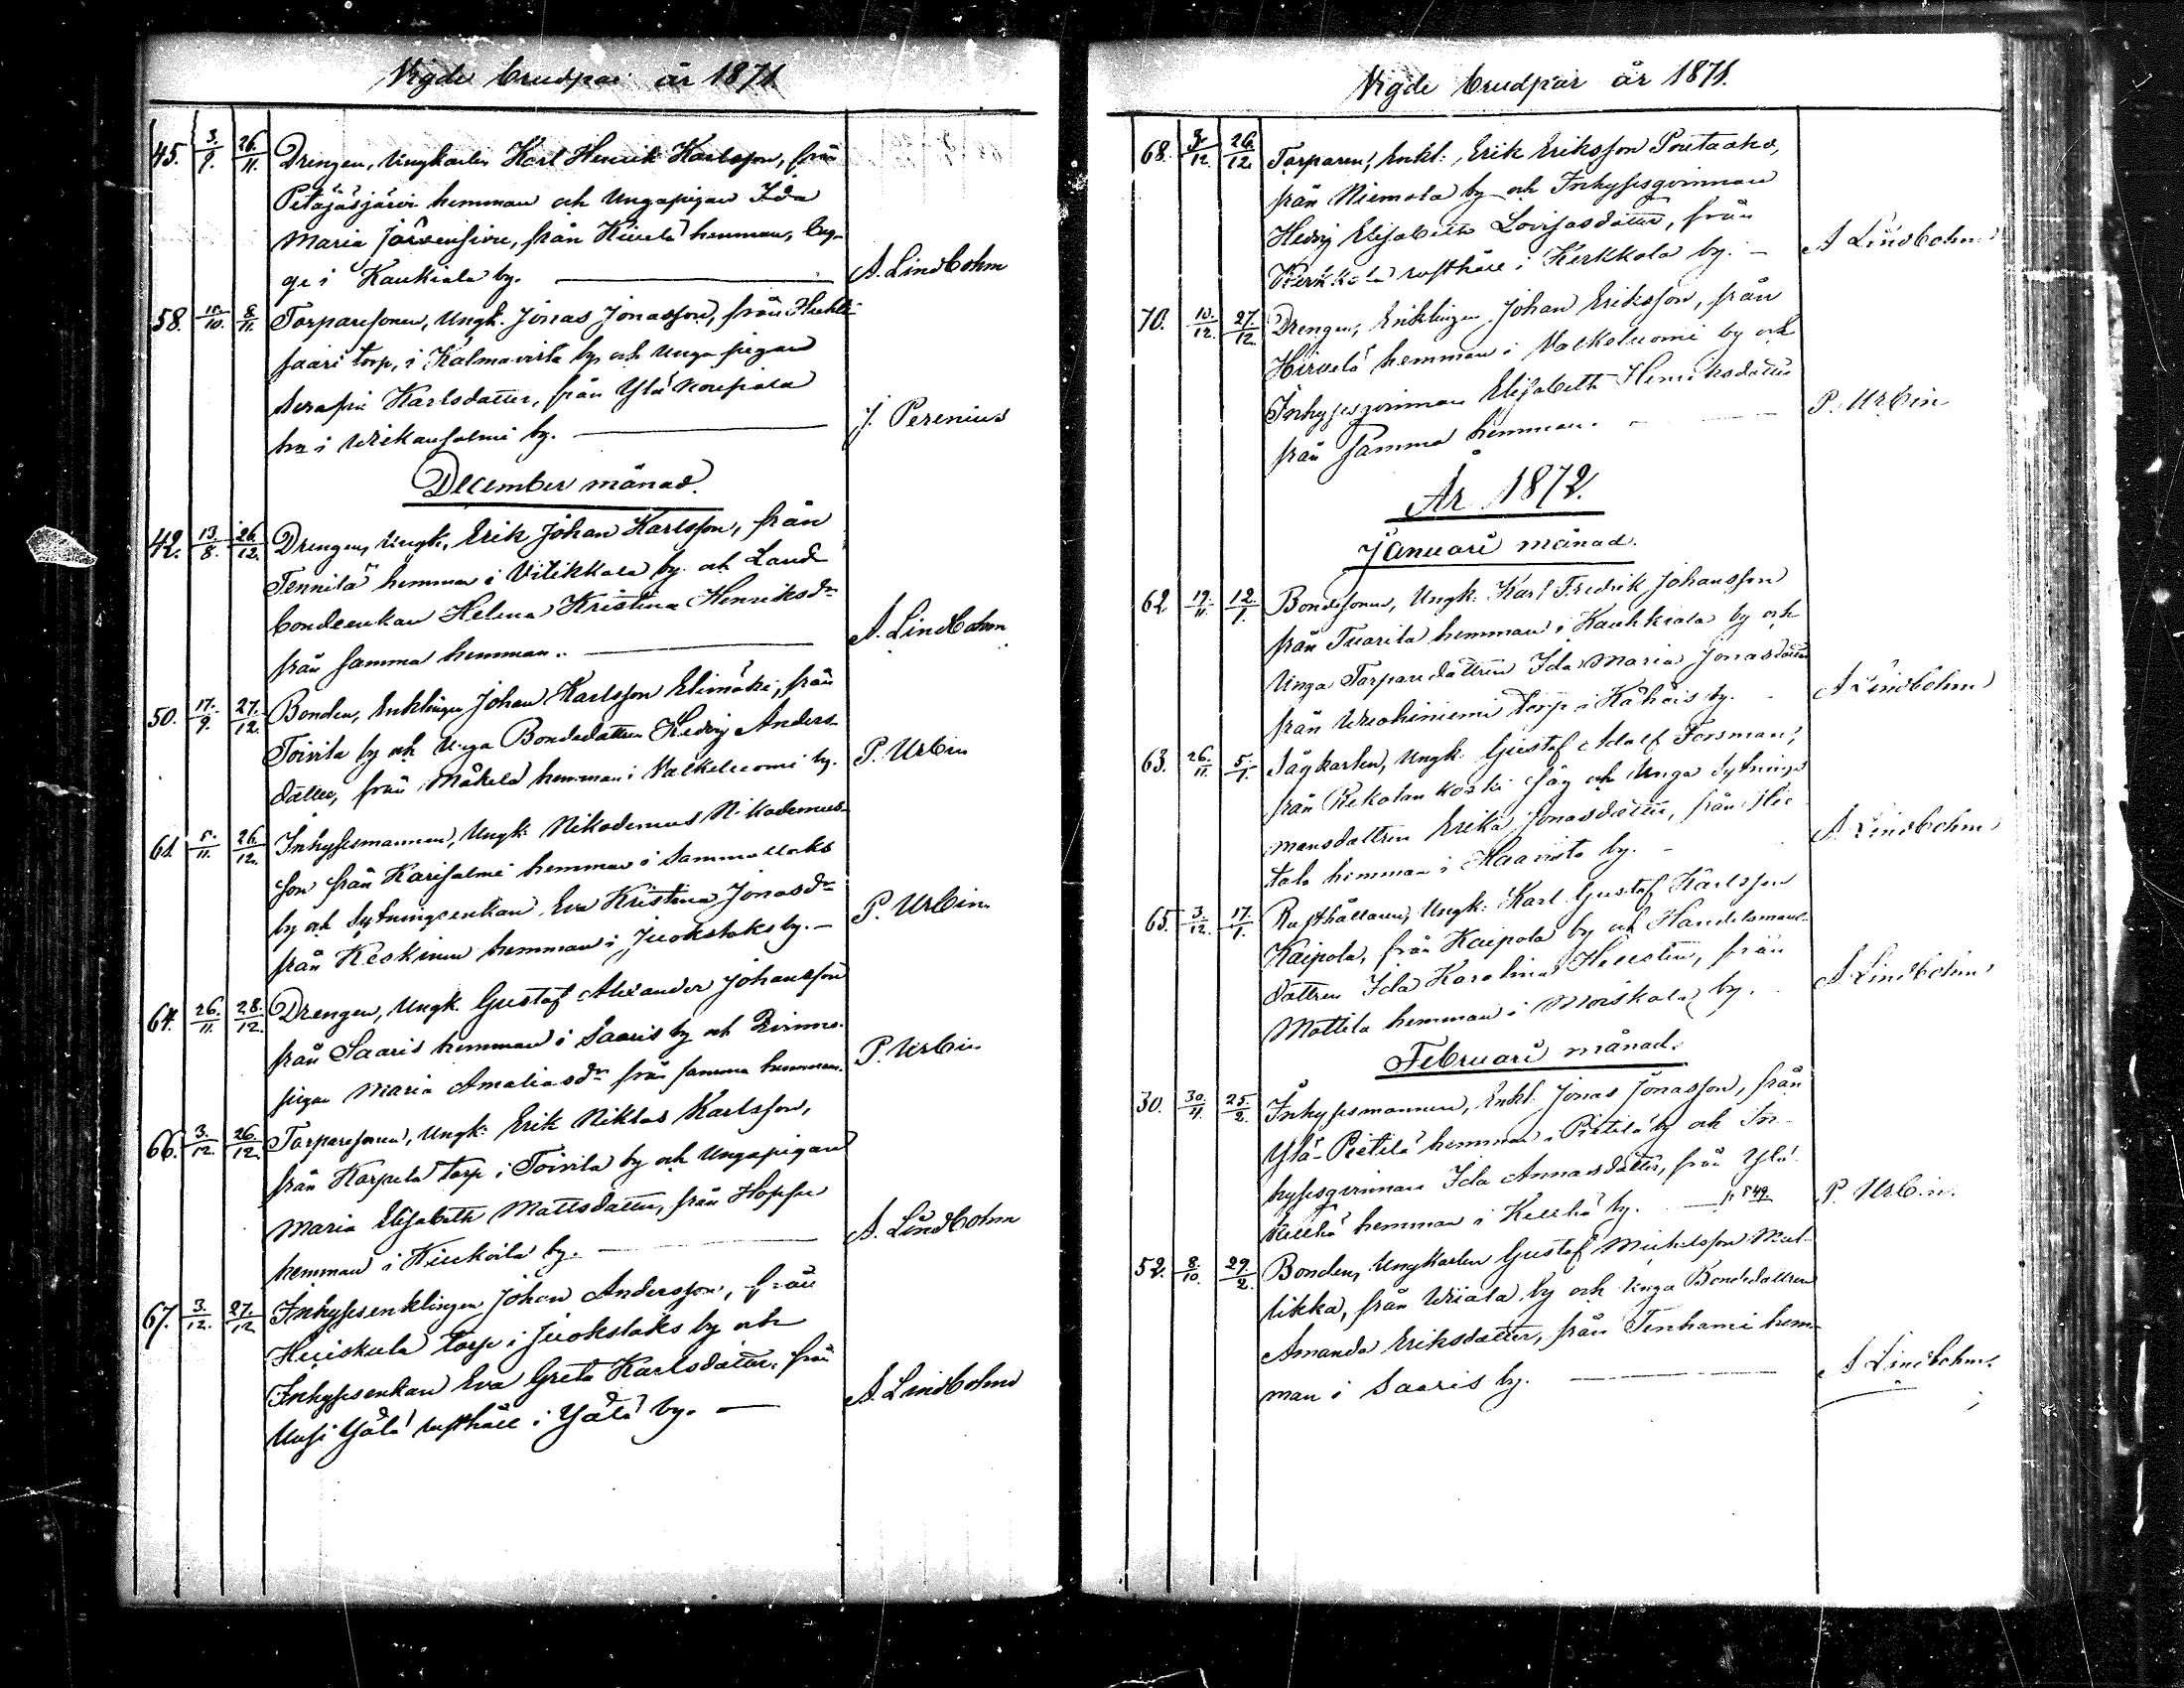 Vigde brudpar år 1871
45. 3./9. 26./11. Drengen, Ungkarlen Karl Henrik Karlsson, från
Petäjäsjärvi hemman och Ungapigan Ida
Maria Jöransdotter, från Kivelä hemman, beg-
ge i Kaukiala by. A. Lindbohm
58. 15./10. 5./11. Torparesonen, Ungk. Jonas Jonasson, från Huhti-
saari torp, i Kalmavirta by och Unga pigan
Serafia Karlsdotter, från Ylä Noupiala
hn i Wrikansalmi by. J. Perenius
December månad.
42. 13./8. 26./12. Drengen, Ungk. Erik Johan Karlsson, från
Tennilä hemman i Vitikkala by och Land
bondeenkan Helena Kristina Henriksdr
från samma hemman. A. Lindbohm
50. 17./9. 27./12. Bonden, Enklingen Johan Karlsson Elimäki, från
Toivila by och Unga Bondedottren Hedvig Anders-
dotter, från Mäkelä hemman i Valkeluomi by. P. Urbin
61. 5./11. 26./12. Inhysesmannen, Ungk. Nikodemus Nikodemus-
son från Karisalmi hemman i Sammallaks
by och Sytningsenkan Eva Kristina Jonasdr
från Keskinen hemman i Juokslaks by. P. Urbin
64. 26./11. 28./12. Drengen, Ungk. Gustaf Alexander Johansson
från Saaris hemman i Saaris by och Qvinns-
pigan Maria Amaliasdr från samma hemman. P. Urbin
66. 3./12. 26./12. Torparesonen, Ungk. Erik Niklas Karlsson,
från Korpela torp i Toivila by och Ungapigan
Maria Elisabeth Mattsdotter, från Hopsu
hemman i Kiukoila by. A. Lindbohm
67. 3./12. 27./12 Inhysesenklingen Johan Andersson, från
Huiskula torp i Juokslaks by och
Inhysesenkan Eva Greta Karlsdotter, från
Uusi Yälä rusthåll i Yälä by. A. Lindbohm
Vigde brudpar år 1871.
68. 3/12. 26/12. Torparen, Enkl. Erik Eriksson Poutaaho,
från Niemola by och Inhysesqvinnan
Hedvig Elisabeth Lovisasdotter, från
Kerkkola rusthåll i Kerkkola by. A Lindbohm
70. 10./12. 27./12. Drengen, Enklingen Johan Eriksson, från
Hirvelä hemman i Valkeluomi by och
Inhysesqvinnan Elisabeth Henriksdotter
från samma hemman. P. Urbin
År 1872.
Januari månad.
62 19./11. 12./1. Bondesonen, Ungk. Karl Fredrik Johansson
från Tuarila hemman i Kauhkiala by och
Unga Torparedottren Ida Maria Jonasdotter
från Wuohiniemi torp i Kähöis by. A Lindbohm
63. 26./11. 5./1. Sågkarlen, Ungk. Gustaf Adolf Forsman,
från Rekolan koski såg och Unga Sytnings-
mansdottren Erika Jonasdotter, från Hie
tala hemman i Haavisto by. A Lindbohm
65. 3./12. 17./1. Rusthållaren, Ungk. Karl Gustaf Karlsson
Kaipola, från Kaipola by och Handelsmans-
dottren Ida Karolina Hellsten, från
Mattila hemman i Moiskala by. A Lindbohm
Februari månad.
30. 30./4. 25./2. Inhysesmannen, Enkl. Jonas Jonasson, från
Ylä-Pietilä hemman i Pietilä by och In-
hysesqvinnan Ida Annasdotter, från Ylä-
Kellhä hemman i Kellhä by. P. Urbin.
52. 8./10. 29./2. Bonden, Ungkarlen Gustaf Mickelsson Mul-
likka, från Wiiala by och Unga Bondedottren
Amanda Eriksdotter, från Tenhami hem-
man i Saaris by. A Lindbohm.